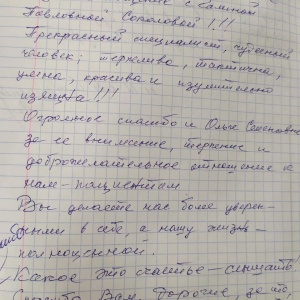 с Галиной
Павловной Соколовой!!!
Прекрасный специалист, чудесный
человек; вежлива, тактична,
умна, красива и изумительно
изящна!!!
Огромное спасибо и Ольге Семеновне
за ее внимание, терпение и
доброжелательное отношение к
нам – пациентам.
Вы делаете нас более уверен-
ными в себе, а нашу жизнь
полноценной.
Какое это счастье – слышать!
Спасибо Вам, дорогие, за то,